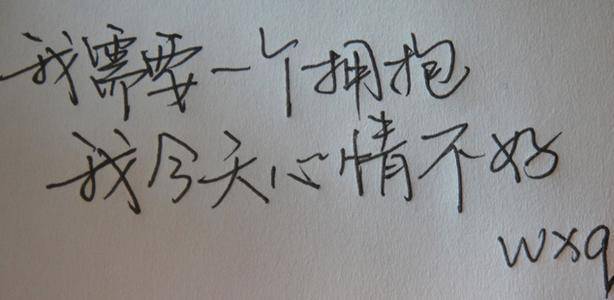 我需要一个拥抱
我今天心情不好
wxq